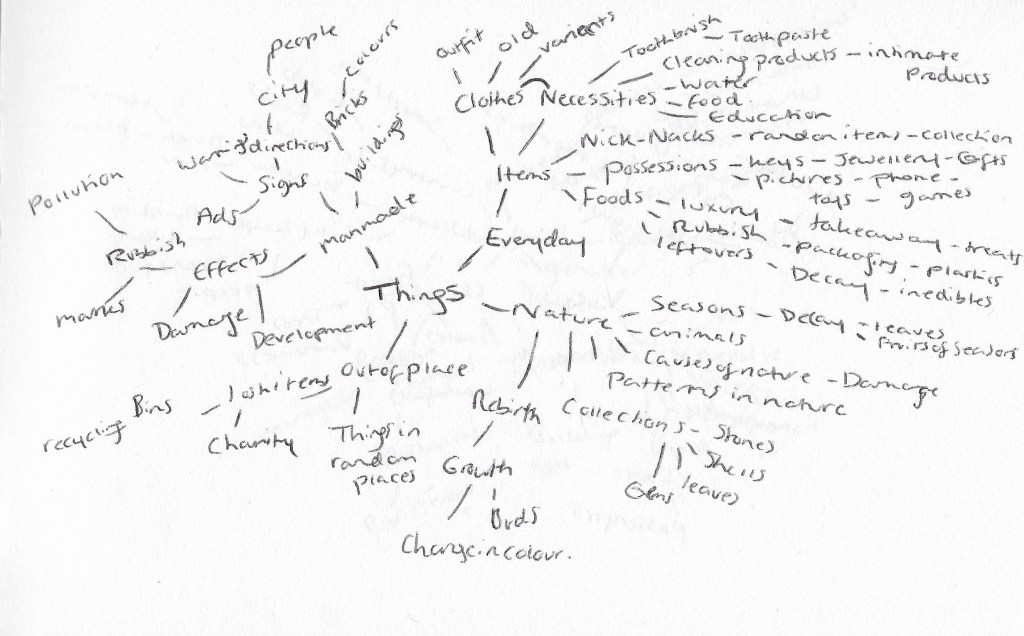 people
city
warning directions
Signs
Ads
colours
Bricks
buildings
manmade
Pollution
Rubbish
marks
Effects
Damage
Development
Things
Everyday
Items
Clothes
outfit
old
variants
Necessities
Toothbrush - Toothpaste
Cleaning products - intimate
products
- water
- food.
Education
Nick-Nacks - random items - collection
Possessions - keys - Jewellery - Gifts
pictures - phone -
toys - games
Foods - luxury - takeaway - treats
Rubbish - packaging - plastics
leftovers - Decay - inedibles
Nature
Seasons - Decay - leaves
fruits of seasons
- animals
Causes of nature - Damage
Patterns in nature
Collections - Stones
Shells
leaves
Gems
Rebirth
Growth
Buds
Change in colour.
Out of place
Things in
random
places
lost items
Charity
Bins
recycling